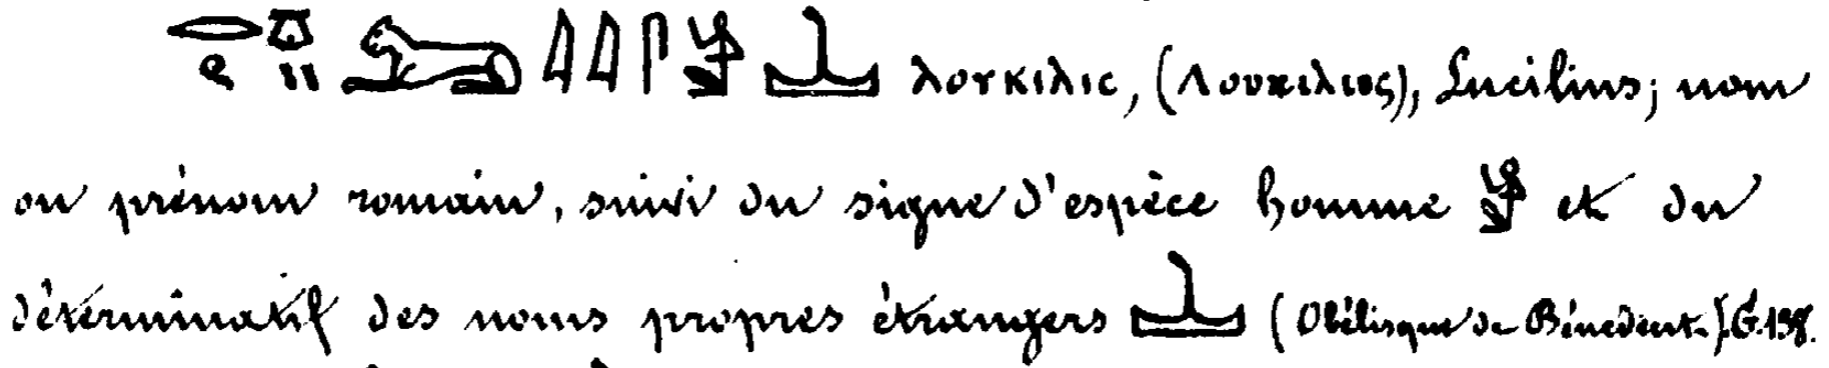 𓂋𓎼𓏲𓏭𓃭𓇋𓇋𓋴𓀀𓌙𓈉 ⲗⲟⲩⲕⲓⲗⲓⲥ, (Λουκιλιος), Lucilius; nom
ou prénom romain, suivi du signe d'espèce homme 𓀀 et du
déterminatif des noms propres étrangers (Obélisque de Bénévent.) G. 138.